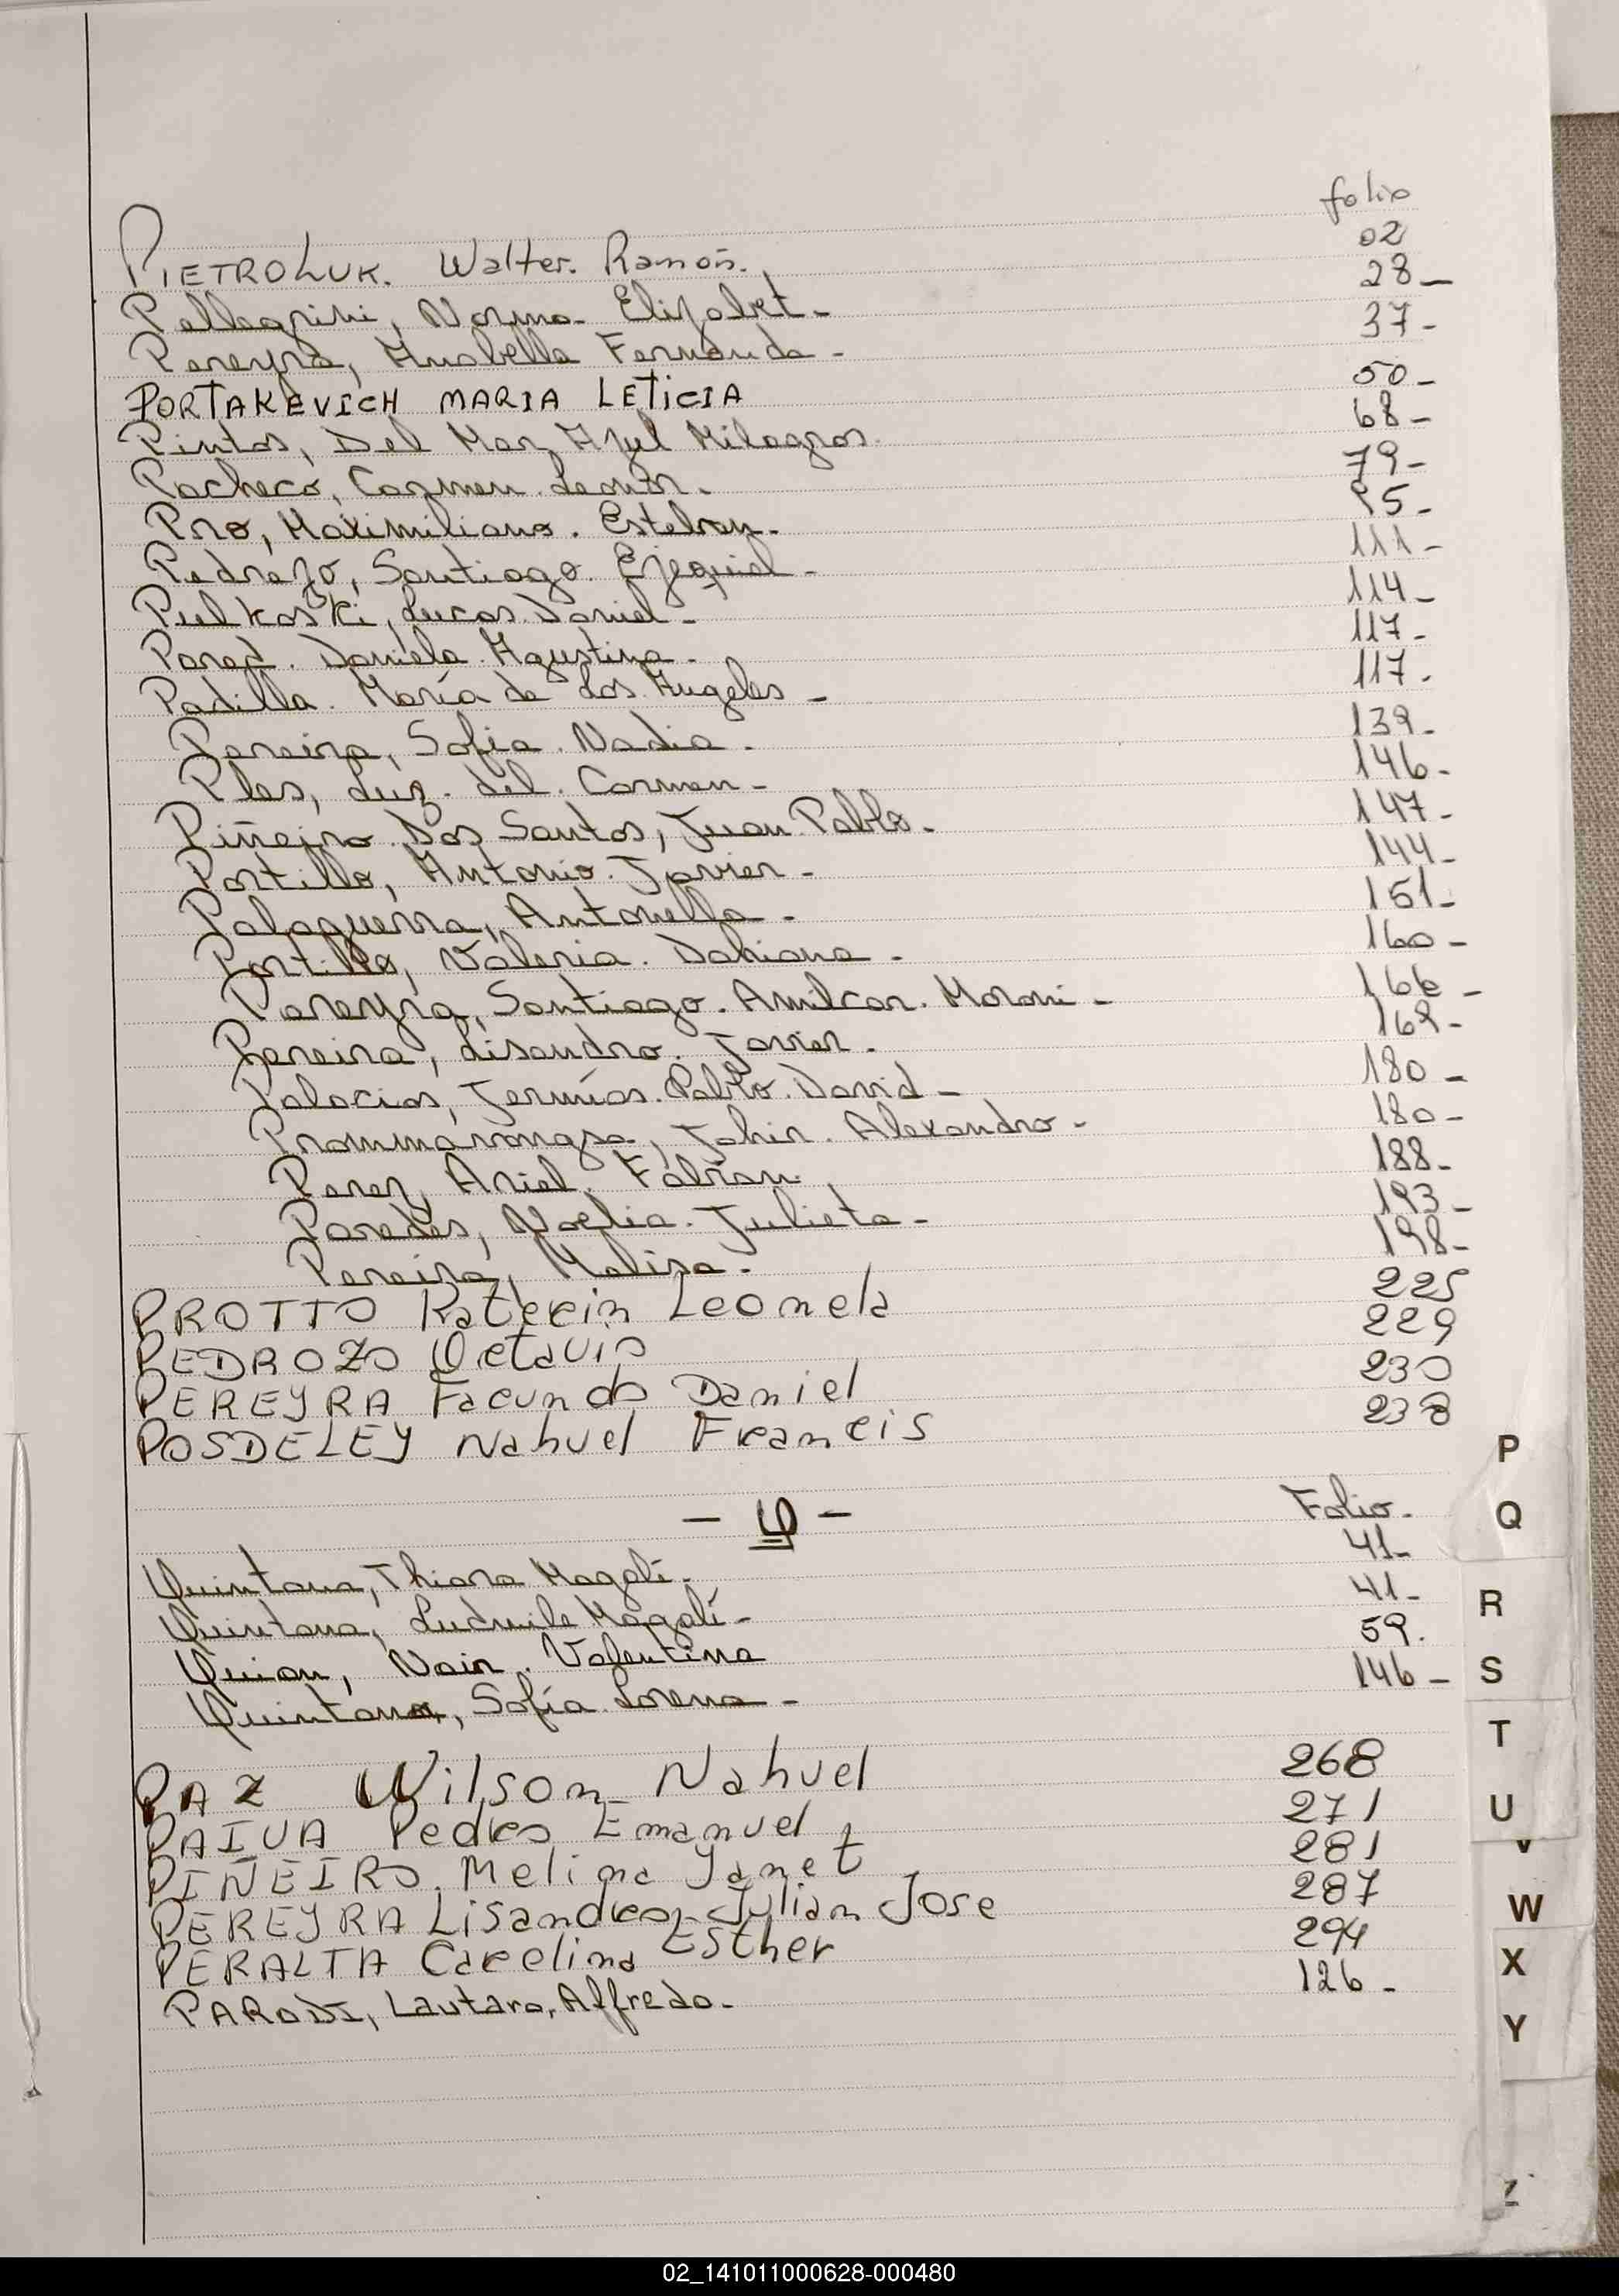 folio
PIETROLUK. Walter. Ramón. 02
Pellegrini, Norma Elizabet - 28 -
Pereyra, Anabella Fernanda - 37 -
PORTAKEVICH MARIA LETICIA 50 -
Pintos, Del Mar Azul Milagros. 68 -
Pacheco, Carmen Leonor. 79 -
Pro, Maximiliano. Esteban. 95 -
Pedrazo, Santiago Ezequiel - 111 -
Pielkoski, Lucas Daniel - 114 -
Perez. Daniela. Agustina. 117 -
Padilla. María de Los Angeles - 117 -
Pereira, Sofia. Nadia. 139 -
Ples, Luz. del. Carmen - 146 -
Piñeiro Dos Santos, Juan Pablo. 147 -
Portillo, Antonio. Javier - 144 -
Palaguerra, Antonella - 151 -
Portillo, Valeria. Dahiana - 160 -
Pereyra, Santiago. Amilcar. Moroni - 166 -
Pereira, Lisandro. Javier. 169 -
Palacios, Jermías. Pablo. David - 180 -
Prommarongsa, Jahir. Alexandro - 180 -
Perez, Ariel. Fabian. 188 -
Paredes, Noelia. Julieta - 193 -
Pereira, Melisa. 198 -
PROTTO Katerin Leonela 225
PEDROZO Octavio 229
PEREYRA Facundo Daniel 230
POSDELEY Nahuel Francis 238
P
- Q - Folio.
Q
Quintana, Thiara Magali. 41 -
Quintana, Ludmila Magalí - 41 -
R
Quian, Nair. Valentina 59.
Quintana, Sofía Lorena - 146 -
S
T
PAZ Wilson Nahuel 268
PAIVA Pedro Emanuel 271
U
PIÑEIRO. Melina Yanet 281
V
PEREYRA Lisandro Julian Jose 287
W
PERALTA Carelina Esther 294
X
PARODI, Lautaro, Alfredo - 126 -
Y
Z
02_141011000628-000480